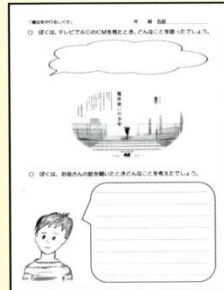 「魔法をかけるしぐさ」　年　組　名前
○　ぼくは、テレビでACのCMを見たとき、どんなことを思ったでしょう。
魔法使いの少年
○　ぼくは、お母さんの話を聞いたときどんなことを考えたでしょう。